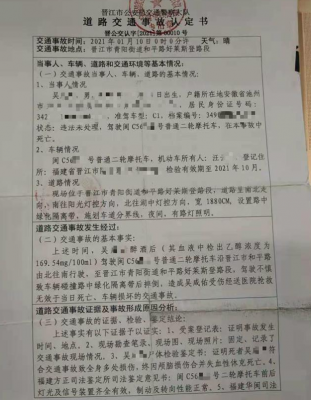 晋江市公安局交通警察大队
道路交通事故认定书
晋公交认字[2021]第00010号
交通事故时间：2021年01月10日0时0分许 天气：晴
交通事故地点：晋江市青阳街道和平路好莱斯登路段
当事人、车辆、道路和交通环境等基本情况：
（一）交通事故当事人、车辆、道路的基本情况。
1、当事人情况
吴 男， 日出生，户籍所在地安徽省池州
居民身份证号码：
342 准驾车型：C1，档案编号：340
状态：违法未处理，驾驶闽C56 号普通二轮摩托车，在本事故中
死亡。
2、车辆情况
闽C56 号普通二轮摩托车，机动车所有人： 登记住
所：福建省晋江市 检验有效期至2021年10月。
3、道路情况
现场位于晋江市青阳街道和平路好莱斯登路段，道路呈南北走
向，南往阳光灯控方向，北往 灯控方向，宽1880CM，设置路中
绿化隔离带，施划车道分界线，夜间，有路灯照明。
道路交通事故发生经过：
（二）交通事故的基本事实：
上述时间，吴 醉酒后（吴血液中检出乙醇浓度为
169.54mg/100ml）驾驶闽C56 号普通二轮摩托车沿晋江市和平路
由北往南行驶，至晋江市青阳街道和平路好莱斯登路段，驾驶不慎
致车辆碰撞路中绿化隔离带后摔倒，造成吴 受伤经送医院抢救
无效于当日死亡、车辆损坏的交通事故。
道路交通事故证据及事故形成原因分析：
（三）交通事故的证据、检验、鉴定结论：
上述事实有以下证据予以证实：1、受案登记表：证明事故发生
时间、地点。2、现场勘查笔录、现场图、现场照片：固定、记录了
交通事故现场情况。3、吴 尸体检验鉴定书：证明死者吴 符
合交通事故致全身多处损伤，终因颅脑损伤合并失血性休克死亡。4、
福建方正司法鉴定所司法鉴定意见书：闽C56 号二轮摩托车前后
灯光及信号装置齐全有效，制动及转向性能正常。5、福建华闽司法